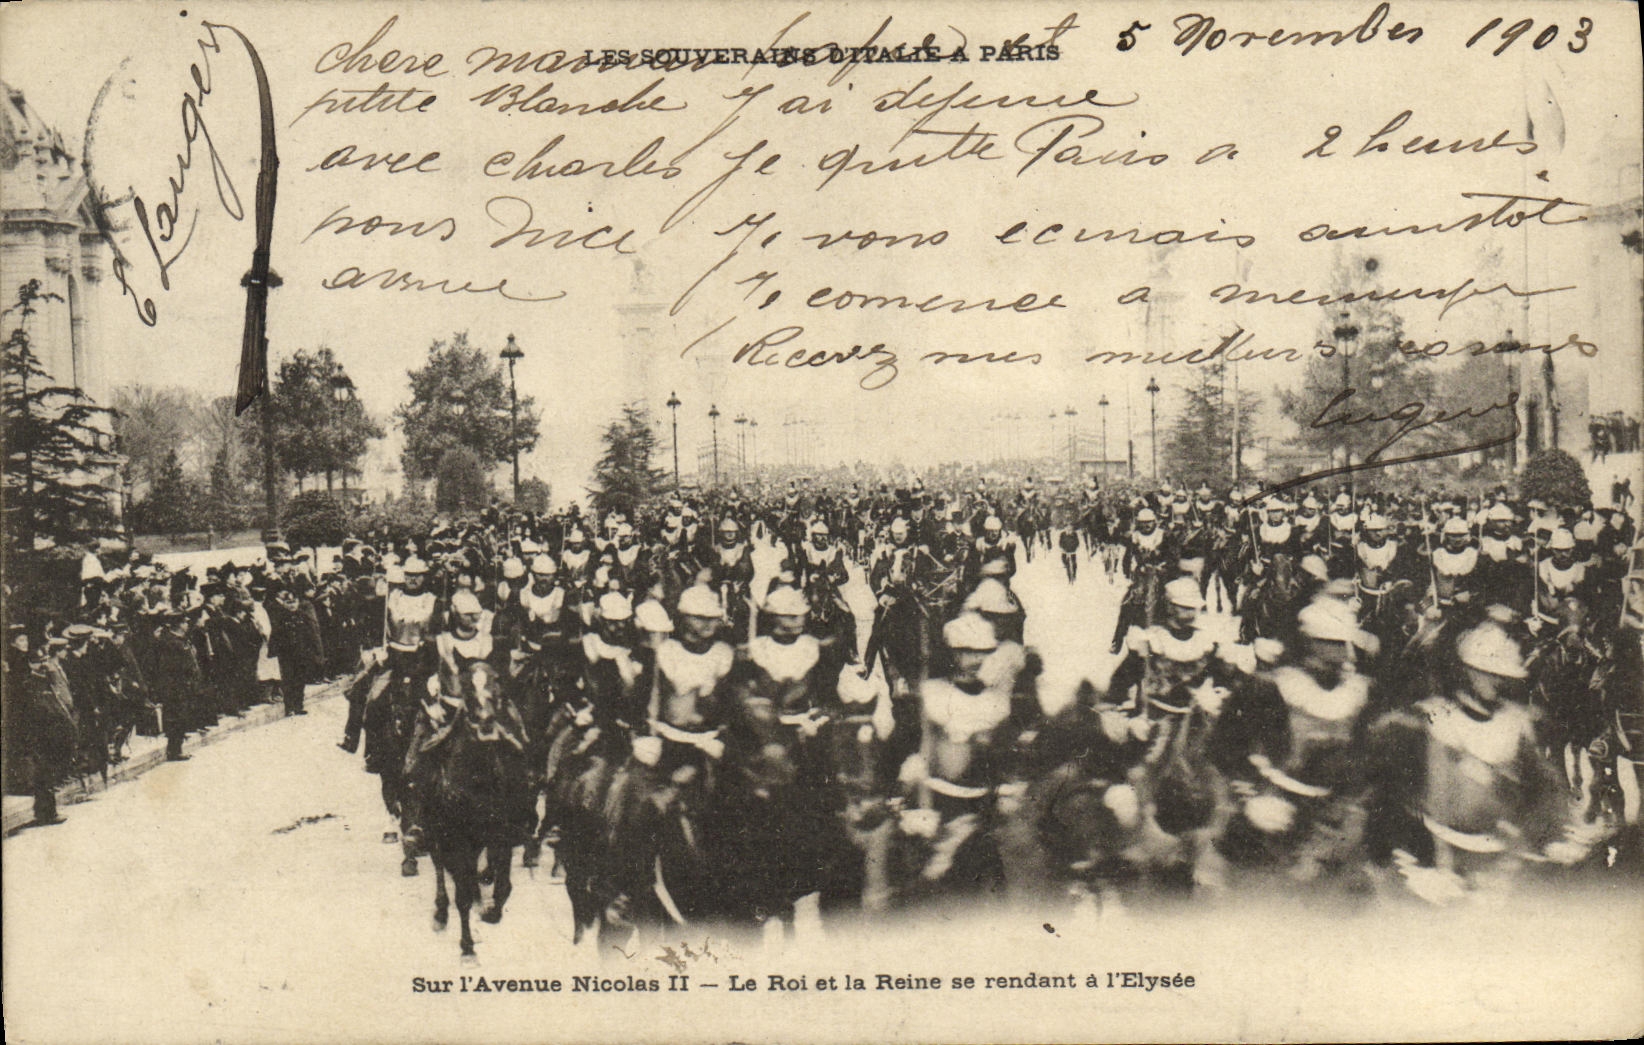 5 November 1903
LES SOUVERAINS D'ITALIE A PARIS
chere maman papa et
petite Blanche J ai dejeune
avec charles Je quitte Paris a 2 heures
pour Nice Je vous ecrirais aussitot
arrivee Je comence a
Recevez mes meilleurs
Eugenie
Sur l'Avenue Nicolas II — Le Roi et la Reine se rendant à l'Elysée